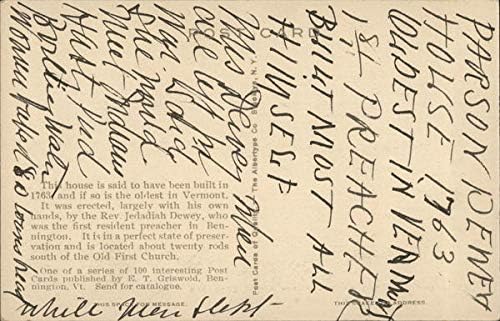 POST CARD
This house is said to have been built in
1763, and if so is the oldest in Vermont.
It was erected, largely with his own
hands, by the Rev. Jedadiah Dewey, who
was the first resident preacher in Ben-
nington. It is in a perfect state of preser-
vation and is located about twenty rods
south of the Old First Church.
One of a series of 100 interesting Post
Cards published by E. T. Griswold, Ben-
nington, Vt. Send for catalogue.
THIS SPACE FOR MESSAGE.
THIS SPACE FOR ADDRESS.
Post Cards of Quality. The Albertype Co., Brooklyn, N.Y.
PARSON DEWEY
HOUSE 1763
OLDEST IN VERMONT
1st PREACHER
BUILT MOST ALL
HIMSELF
Mrs Dewey
was
she would
Indians
while men slept